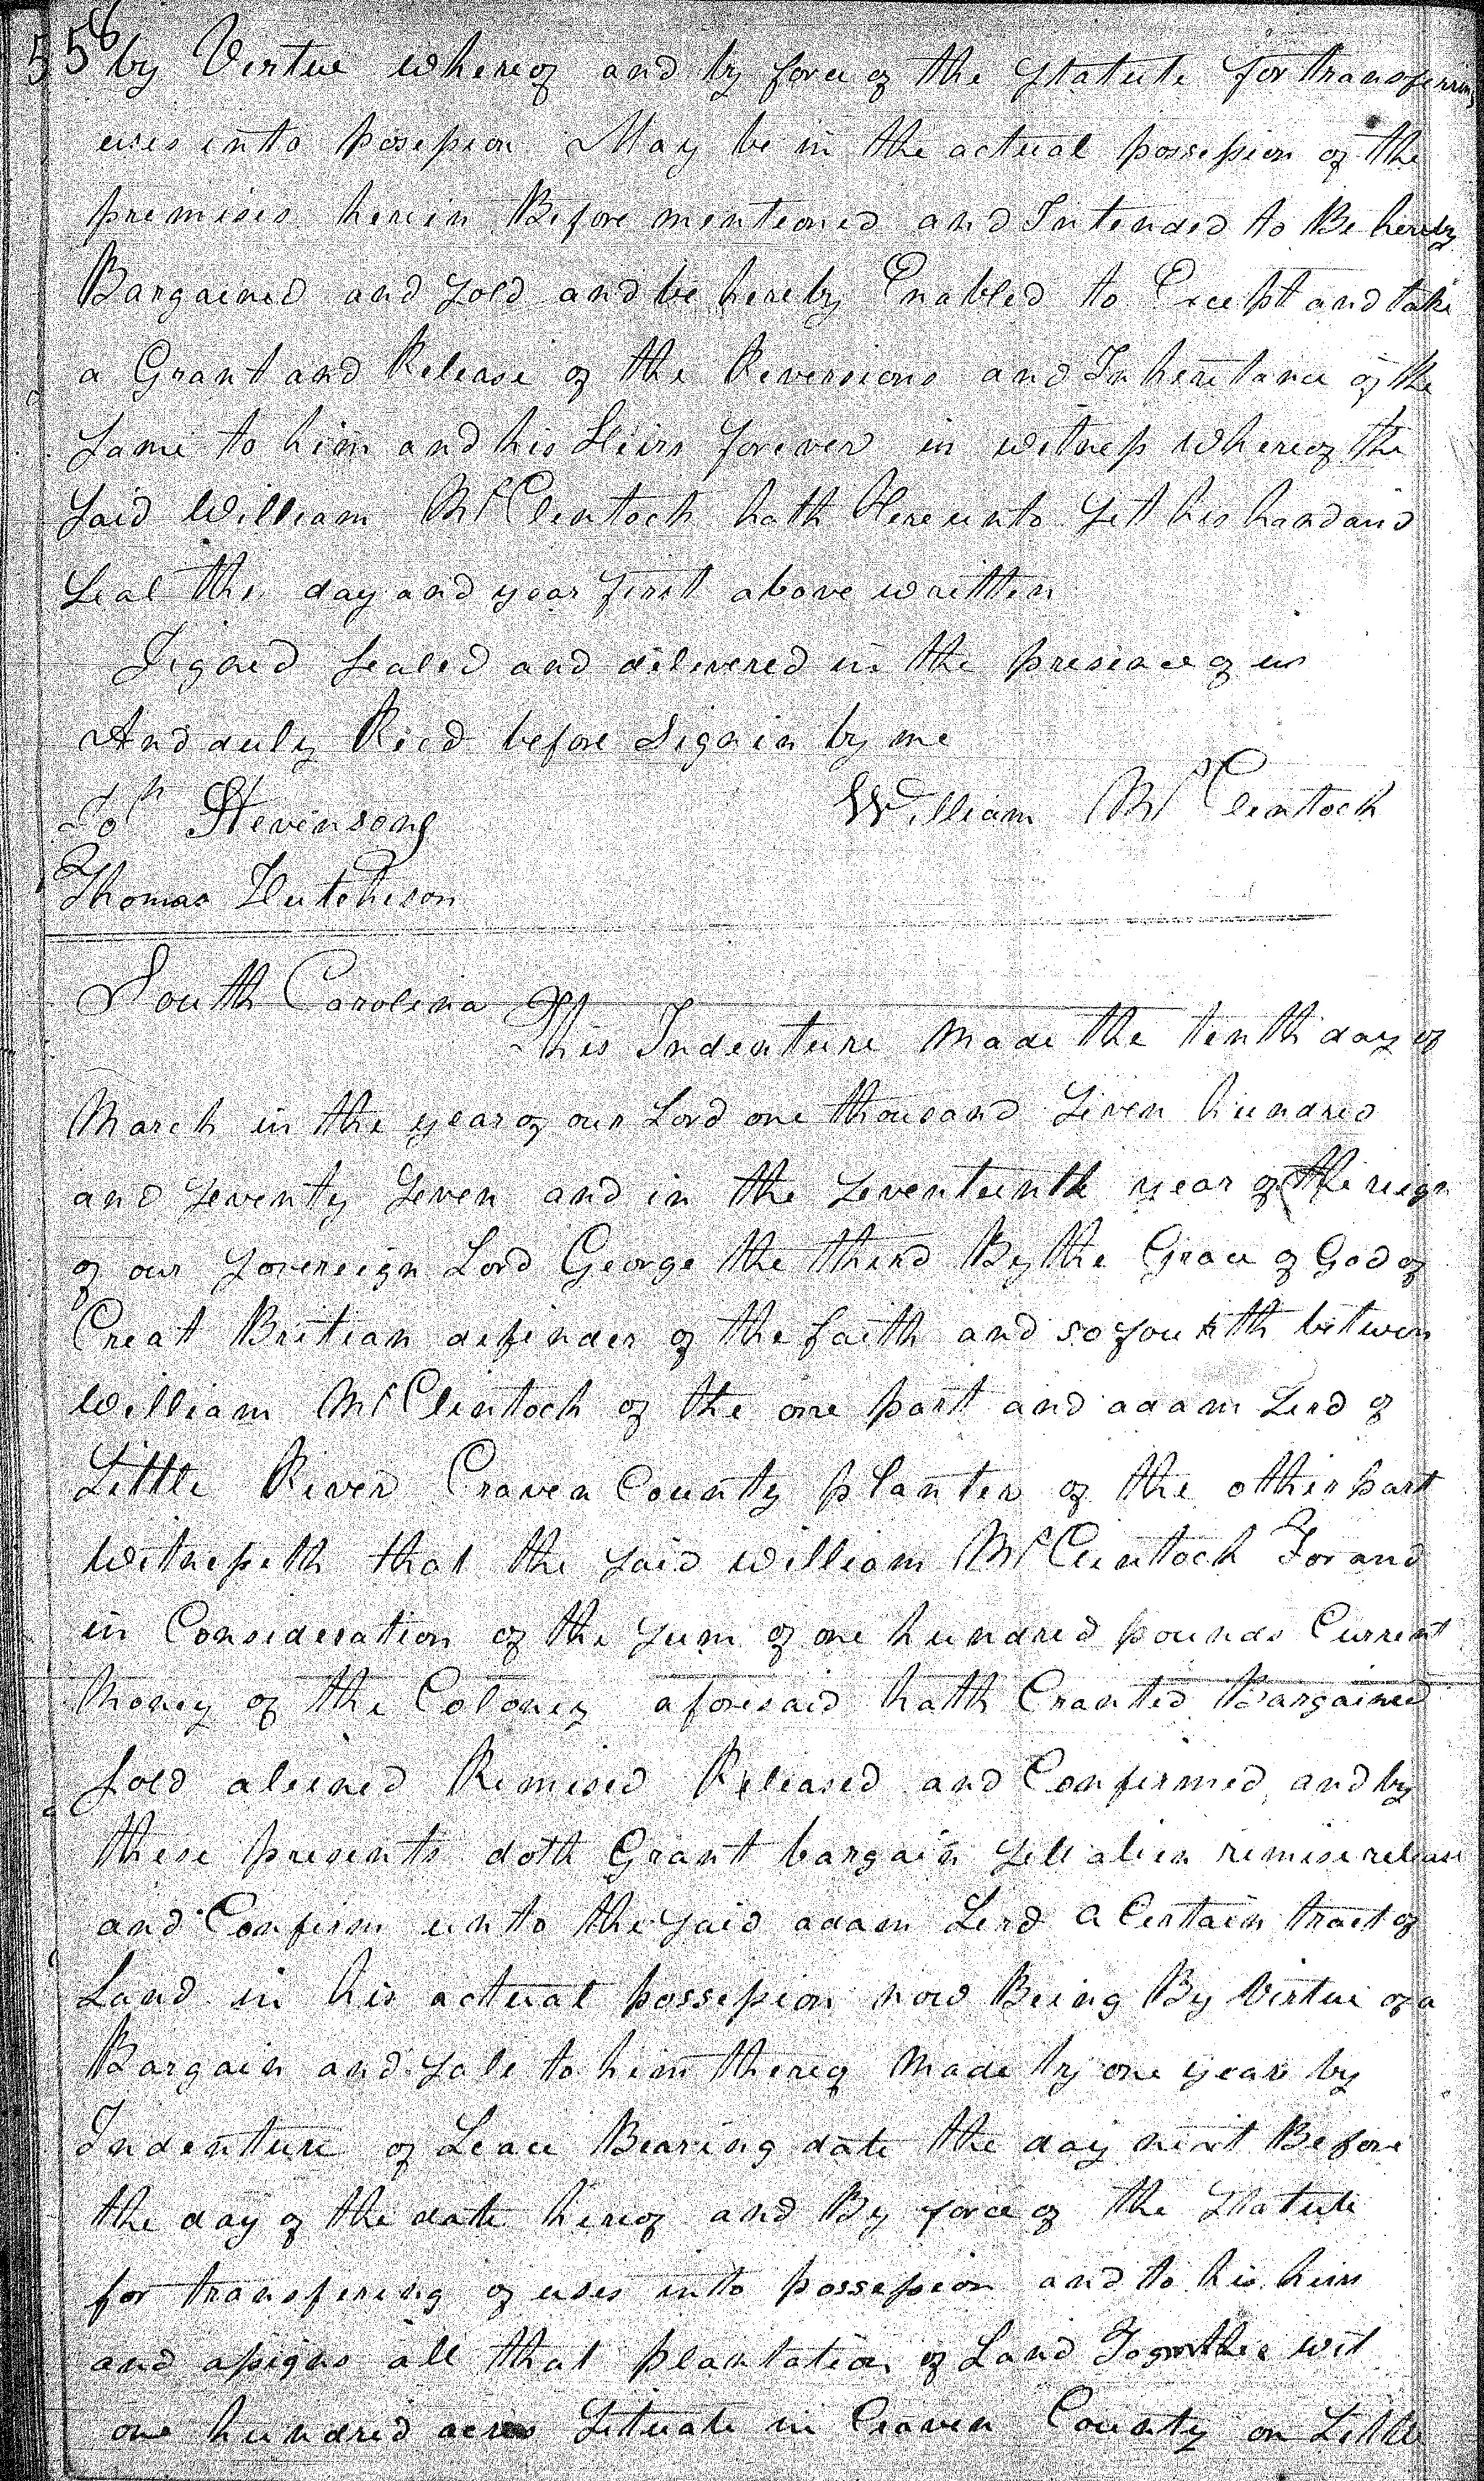 558
by Virtue whereof and by force of the Statute for transferring
uses into possession May be in the actual possession of the
premises herein Before mentioned and Intended to Be hereby
Bargained and Sold and be hereby Enabled to Except and take
a Grant and Release of the Reversions and Inheritance of the
Same to him and his Heirs forever in witness whereof the
Said William McClintock hath Hereunto Sett his hand and
Seal the day and year first above written
Signed Sealed and delivered in the presence of us
And duly Read before Signin by me
Jo Stevenson William McClintock
Thomas Hutchison
South Carolina This Indenture Made the tenth day of
March in the year of our Lord one thousand Seven hundred
and Seventy Seven and in the Seventeenth year of the reign
of our Sovereign Lord George the third By the Grace of God of
Great Britian defender of the faith and so fourth betwen
William McClintock of the one part and adam Lerd of
Little River Craven County planter of the other part
Witnesseth that the Said William McClintock For and
in Consideration of the Sum of one hundred pounds Current
Money of the Coloney aforesaid hath Granted Bargained
Sold aliened Remised Released and Confirmed and by
these presents doth Grant bargain Sell alien remise release
and Confirm unto the Said adam Lerd a Certain tract of
Land in his actual possession now Being By Virtue of a
Bargain and Sale to him thereof Made by one year by
Indenture of Leace Bearing date the day next Before
the day of the date hereof and By force of the Statute
for transfering of uses into possession and to his heirs
and assigns all that plantation of Land Together wit
one hundred acres Situate in Craven County on Little